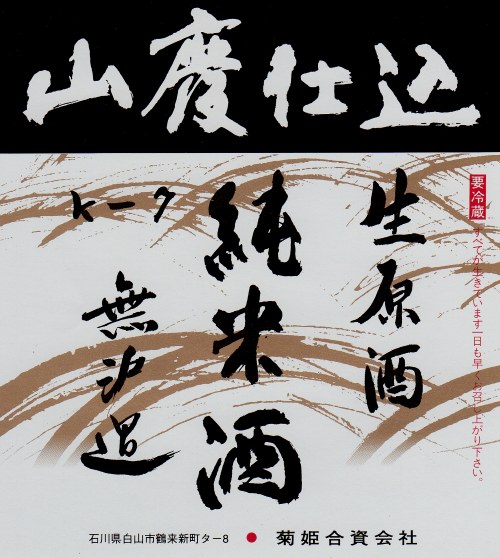 山廢仕込
要冷蔵 すべてが生きています一日も早くお召し上がり下さい。
生原酒
純米酒
K-7
無沪過
石川県白山市鶴来新町タ−8 ● 菊姫合資会社